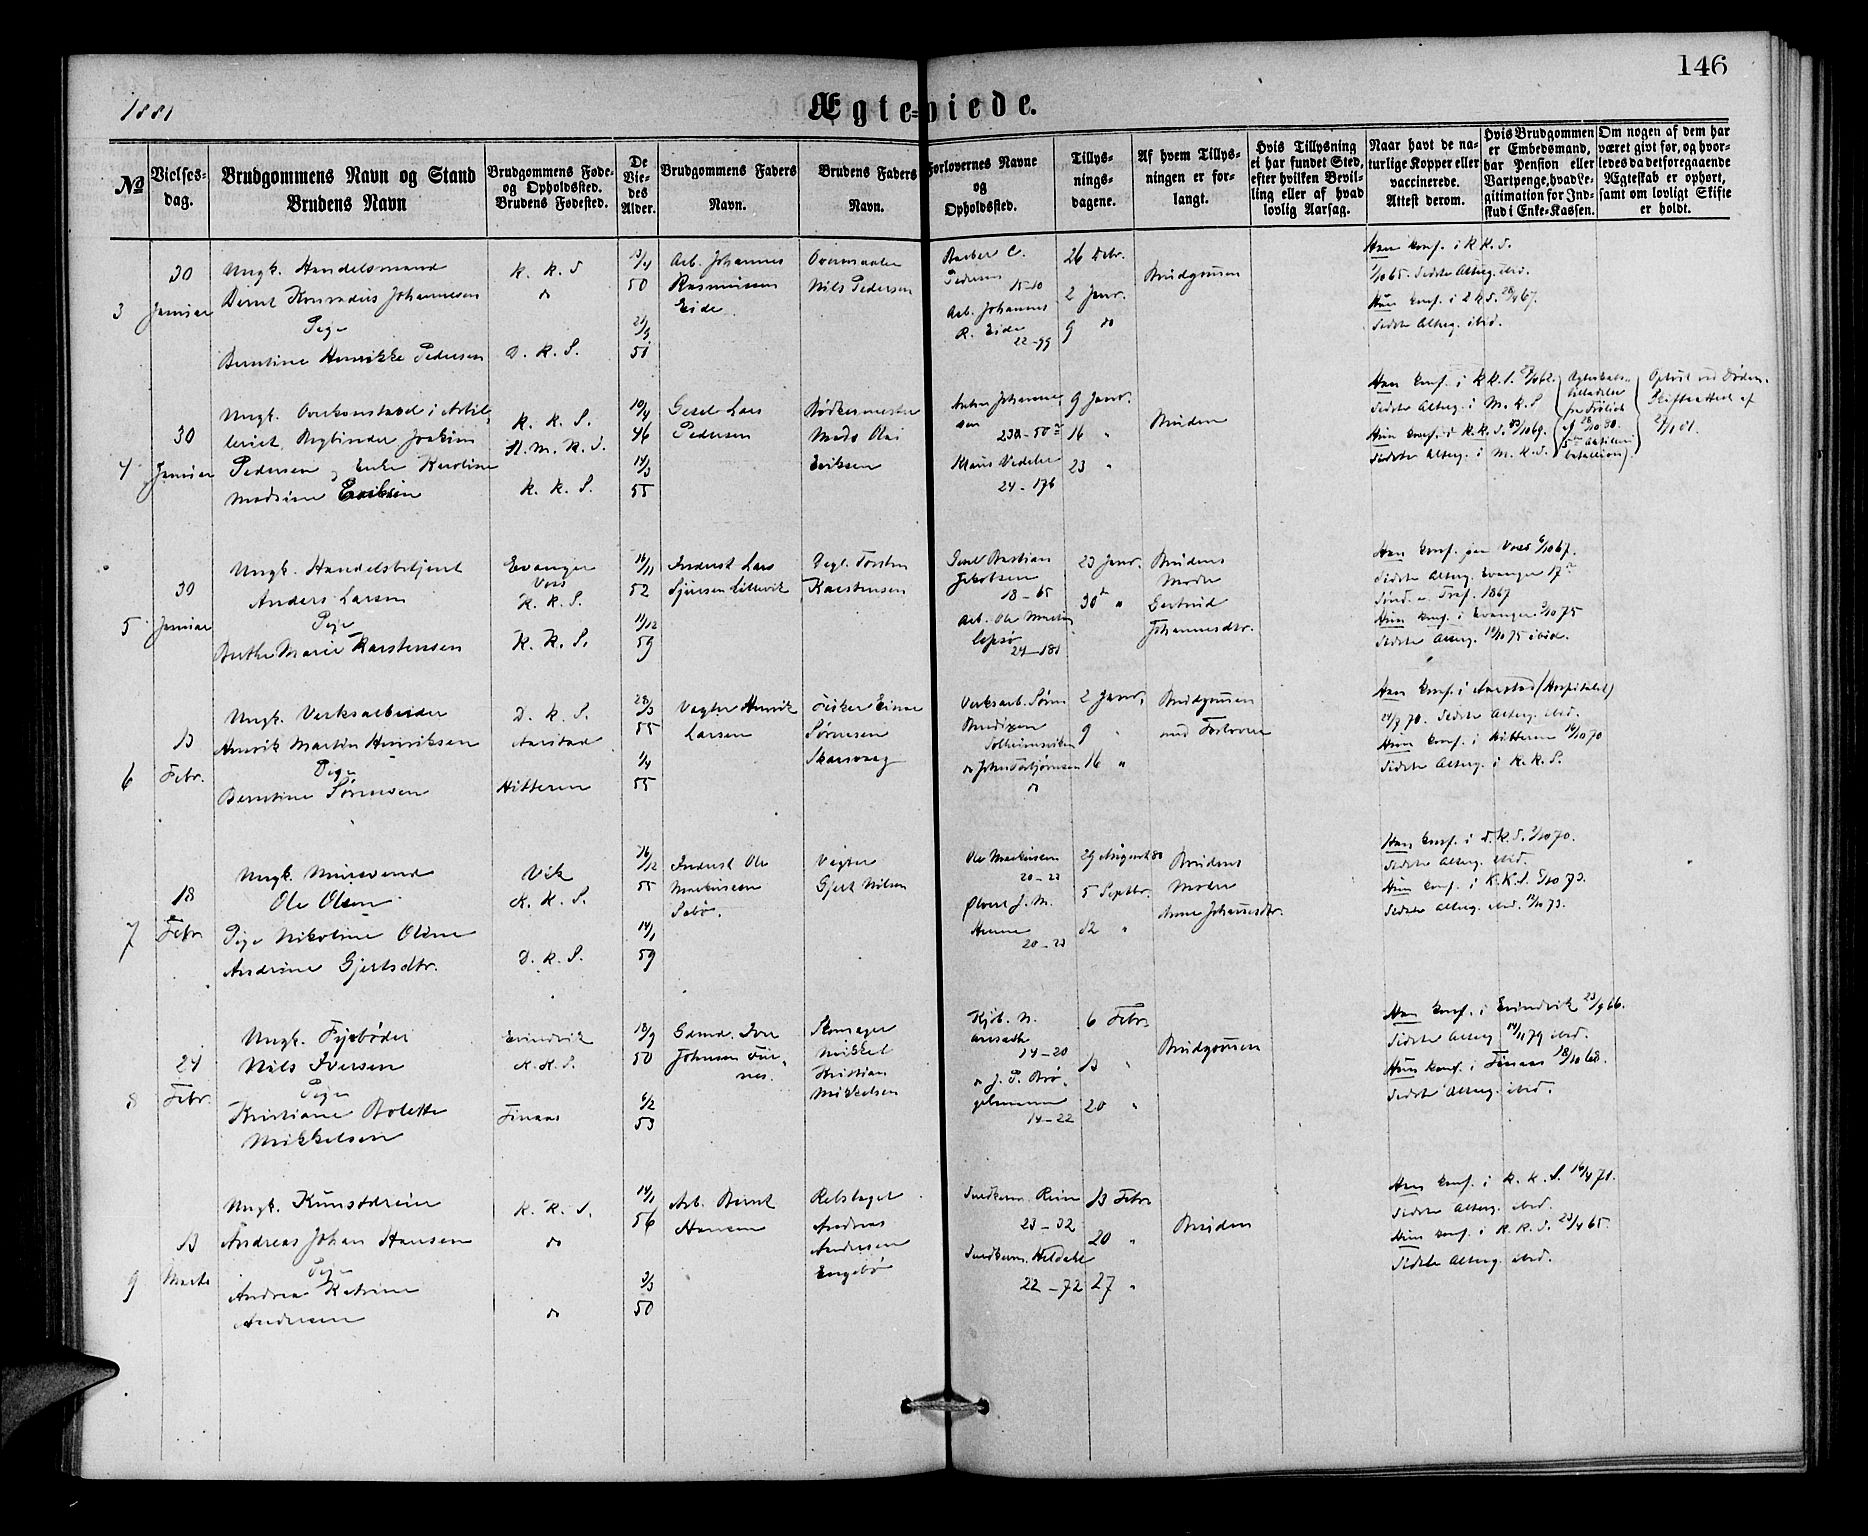 146
1881
Ægteviede.
No
Vielses-
dag.
Brudgommens Navn og Stand
Brudens Navn
Brudgommens Føde-
og Opholdssted.
Brudens Fødested.
De
Vie-
des
Alder.
Brudgommens Faders
Navn.
Brudens Faders
Navn.
Forlovernes Navne
og
Opholdssted.
Tillys-
nings-
dagene.
Af hvem Tillys-
ningen er for-
langt.
Hvis Tillysning
ei har fundet Sted,
efter hvilken Bevil-
ling eller af hvad
lovlig Aarsag.
Naar havt de na-
turlige Kopper eller
vaccinerede.
Attest derom.
Hvis Brudgommen
er Embedsmand,
har Pension eller
Vartpenge, hvad Le-
gitimation for Ind-
skud i Enke-Kassen.
Om nogen af dem har
været givt før, og hvor-
ledes da det foregaaende
Ægteskab er ophørt,
samt om lovligt Skifte
er holdt.
3
30
Januar
Ungk. Handelsmand
Bernt Konradus Johannesen
Pige
Berntine Henrikke Pedersen
K. K. S
do
D. K. S.
50
21/3
51
Arb. Johannes
Rasmussen
Eide
Overmaaler
Nils Pedersen
Barber C.
Pedersen
15-10
Arb. Johannes
R. Eide
22-99
26 Debr.
2 Janr.
9 do
Brudgommen
Han konf. i K. K. S.
1/10 65. Sidste Alterg. ibid.
Hun konf. i D K S. 28/4 67.
Sidste Alterg. ibid.
4
30
Januar
Ungk. Overkonstabel i Artil-
leriet, Bogbinder Joakim
Pedersen og Enke Karoline
Madsine Eriksen
K. K. S.
St. M. K. S.
K. K. S.
10/4
46
14/3
55
Gesel Lars
Pedersen
Bødkermester
Mads Olai
Eriksen
Anton Johannes-
sen
23a-50
Klaus Vedeler
24-176
9 Janr.
16 "
23 "
Bruden
Han konf. i K. K. S.
Sidste Alterg. i M. K. S
Hun konf. i K. K. S. 69.
Sidste Alterg. i M. K. S.
Ophørt ved Døden.
Skifteattest af
5
30
Januar
Ungk. Handelsbetjent
Anders Larsen
Pige
Berthe Marie Karstensen
Evanger
Voss
K. K. S.
K. K. S.
16/11
52
11/12
59
Inderst Lars
Sjursen Lillevik
Torsten
Karstensen
Bastian
Jakobsen
18-65
Arb. Ole Martin
Lepsø
24-181
23 Janr.
30 "
Brudens
Moder
Gertrud
Johannesdtr.
Han konf. paa Voss 6/10 67.
Sidste Alterg. Evanger 17de
Sønd. e. Tref. 1867
Hun konf. i Evanger 3/10 75
Sidste Alterg. 10/10 75 ibid.
6
13
Febr.
Ungk. Verksarbeider
Henrik Martin Henriksen
Pige
Berntine Sørensen
D. K. S.
Aarstad
Hitteren
28/3
55
1/4
55
Vægter Henrik
Larsen
Fisker Einar
Sørensen
Skarsvaag
Verksarb. Søren
Bendixen
Solheimsviken
do John Torbjørnsen
do
2 Janr.
9 "
16 "
Brudgommen
med Forlovere
Han konf. i Aarstad (Hospitalet)
70. Sidste Alterg. ibid.
Hun konf. i Hitteren 16/10 70
Sidste Alterg. i K. K. S.
7
18
Febr
Ungk. Murersvend
Ole Olsen
Pige Nikoline Oline
Andrine Gjertsdtr.
Vik
K. K. S.
D. K. S.
16/12
55
14/1
59
Inderst Ole
Markussen
Sæbø.
Vægter
Gjert Nilsen
Ole Markussen
20-23
J. M.
20-23
29 August 80
5 Septbr.
12 "
Brudens
Moder
Anne Johannesdtr.
Han konf. i D. K. S. 2/10 70.
Sidste Alterg. ibid.
Hun konf. i K. K. S. 5/10 73.
Sidste Alterg. ibid. 12/10 73.
8
24
Febr.
Ungk. Fyrbøder
Nils Iversen
Pige
Kristiane Bolette
Mikkelsen
Evindvik
K. K. S.
Finaas
18/9
50
6/2
53
Gdmd. Iver
Johnsen Fur-
nes.
Skomager
Mikkel
Kristian
Mikkelsen
Kjøb. N.
14-20
do J. P. Brø-
gelmann
14-22
6 Febr.
13 "
20 "
Brudgommen
Han konf. i Evindvik 23/9 66.
Sidste Alterg. 79 ibid.
Hun konf. i Finaas 18/10 68.
Sidste Alterg. ibid.
9
13
Marts
Ungk. Kunstdreier
Andreas Johan Hansen
Pige
Andrea Katrine
Andersen
K. K. S.
do
do
14/1
56
3/3
50
Arb. Bernt
Hansen
Rebslager
Andreas
Andersen
Engebø
Snedkerm. Reim
23-32
Snedkerm. Heldahl
22-72
13 Febr
20 "
27 "
Bruden
Han konf. i K. K. S. 16/4 71.
Sidste Alterg. ibid.
Hun konf. i K. K. S. 23/4 65.
Sidste Alterg. ibid.